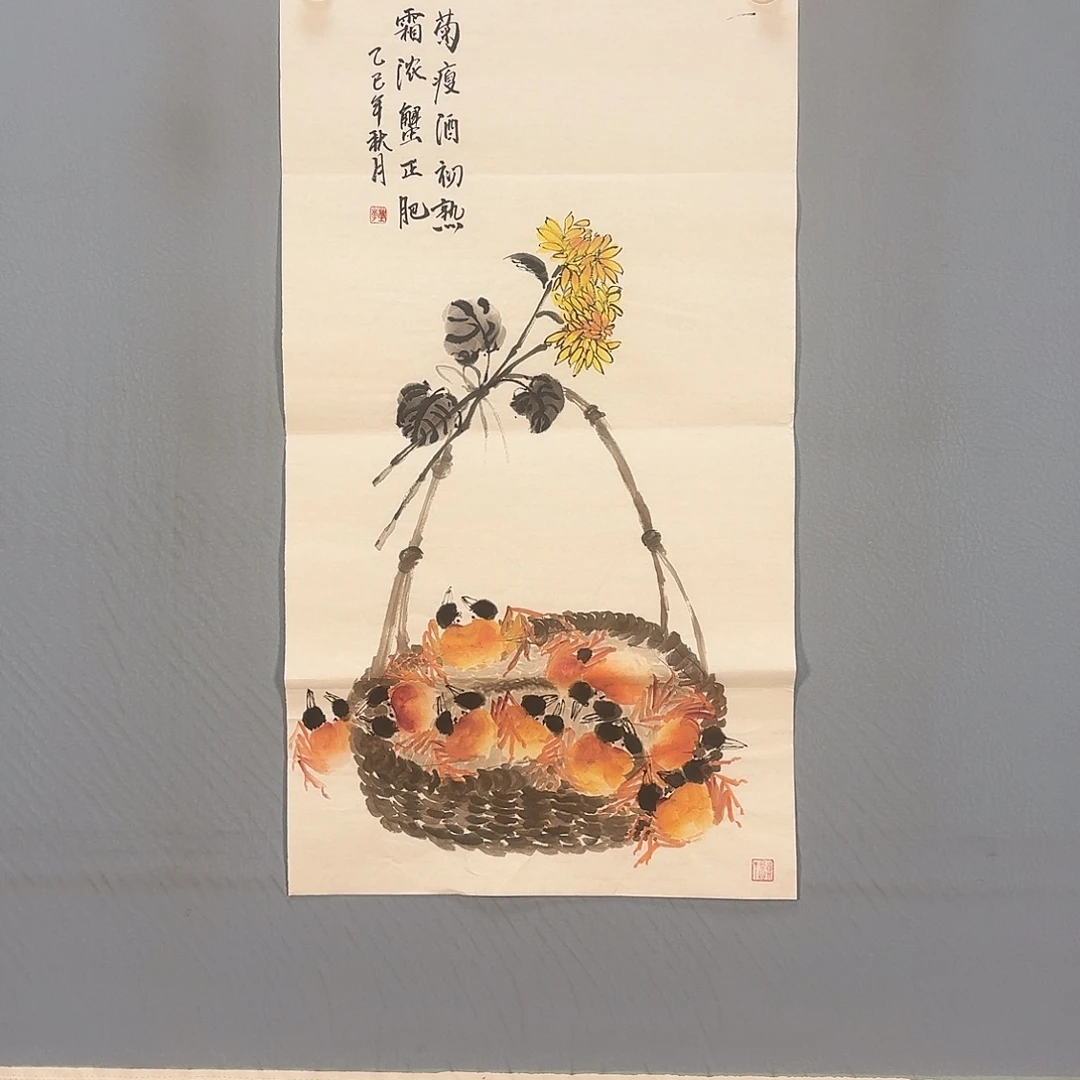 菊瘦酒初熟
霜浓蟹正肥
乙巳年秋月